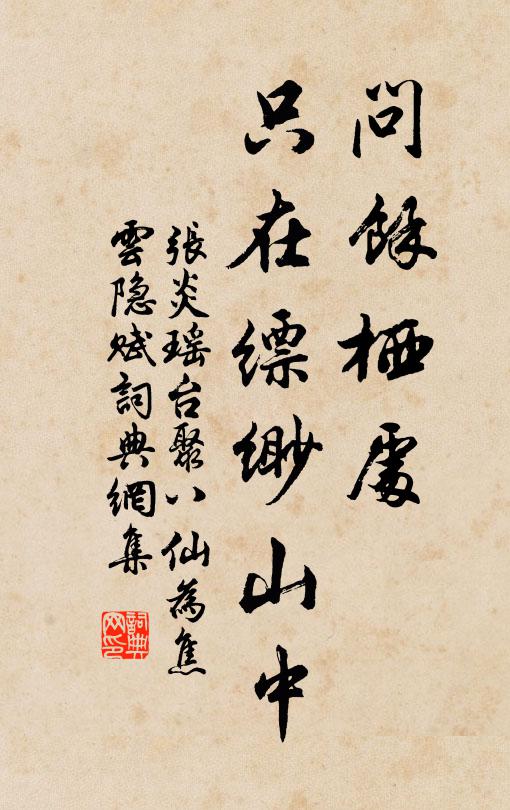 問餘栖處
只在缥缈山中
張炎瑶台聚八仙為焦
雲隐賦詞典網集
詞典网印